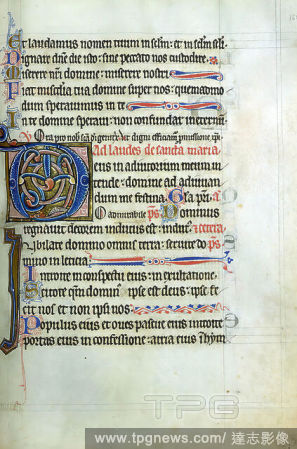 Et laudamus nomen tuum in sclm: et in sclm scli.
Dignare dne die isto: sine peccato nos custodire.
Miserere nri domine: miserere nostri
Fiat misericordia tua domine super nos: quemadmo
dum sperauimus in te
In te domine speraui: non confundar in eternum.
Ora pro nob sca dei genitrix. Ut digni efficiam
Ad laudes de sancta maria
Deus in adiutorium meum in
tende: domine ad adiuuan
dum me festina. Gla pri.
O admirabile ps Dominus
regnauit decorem indutus est: indut
Iubilate domino omnis terra: seruite do ps
mino in leticia
Introite in conspectu eius: in exultatione.
Scitote qm domin ipse est deus: ipse fe
cit nos et non ipsi nos
Populus eius et oues pascue eius introite
portas eius in confessione: atria eius
TPG
www.tpgnews.com/達志影像